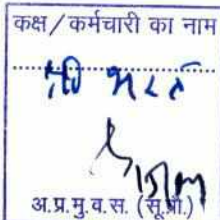 कक्ष/कर्मचारी का नाम
श्री भरत
अ.प्र.मु.व.स. (सू.प्रौ.)